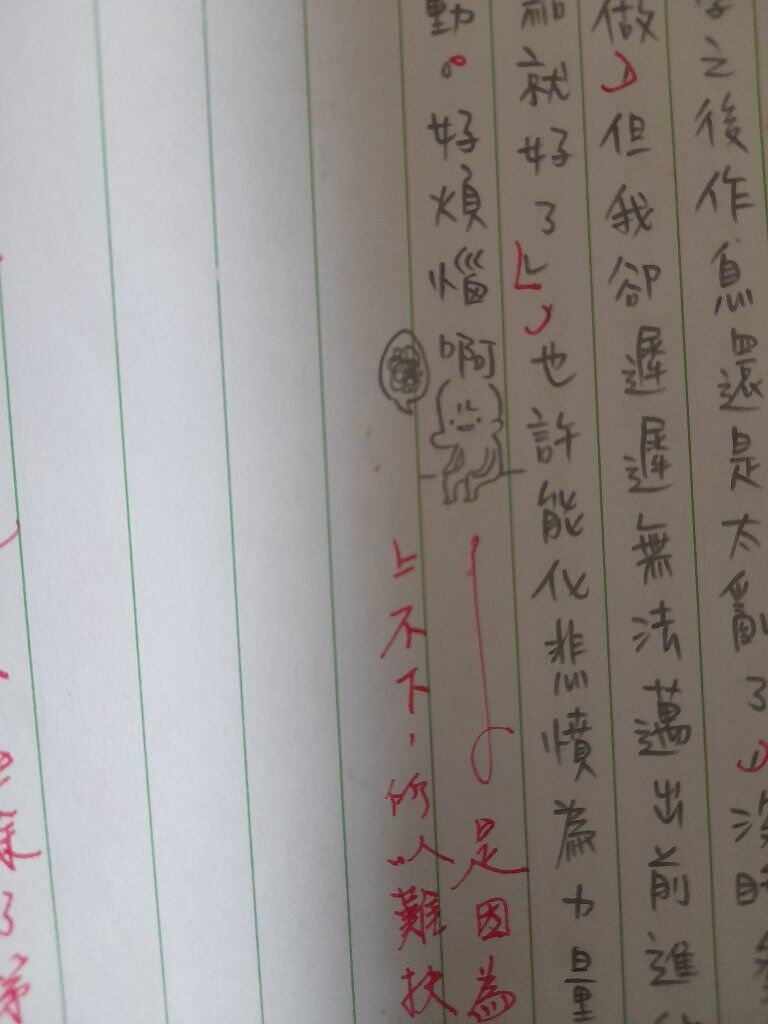 之後作息還是太亂了，沒
做，但我卻遲遲無法邁出前進
就好了」，也許能化悲憤為力量
動。好煩惱啊
是因為
上不下，所以難抉